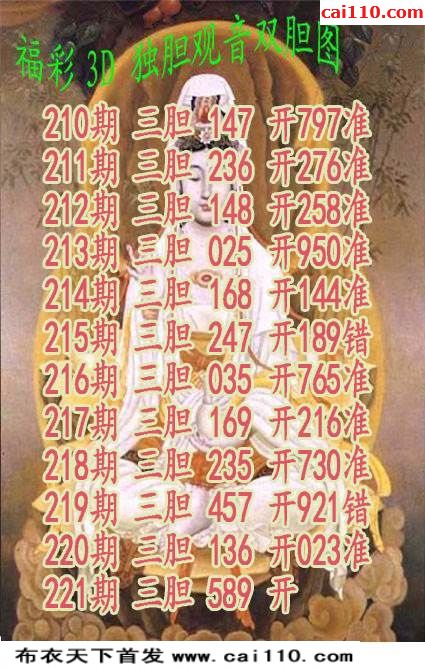 cai110.com
福彩 3D 独胆观音双胆图
210期 三胆 147 开797准
211期 三胆 236 开276准
212期 三胆 148 开258准
213期 三胆 025 开950准
214期 三胆 168 开144准
215期 三胆 247 开189错
216期 三胆 035 开765准
217期 三胆 169 开216准
218期 三胆 235 开730准
219期 三胆 457 开921错
220期 三胆 136 开023准
221期 三胆 589 开
布衣天下首发 www.cai110.com